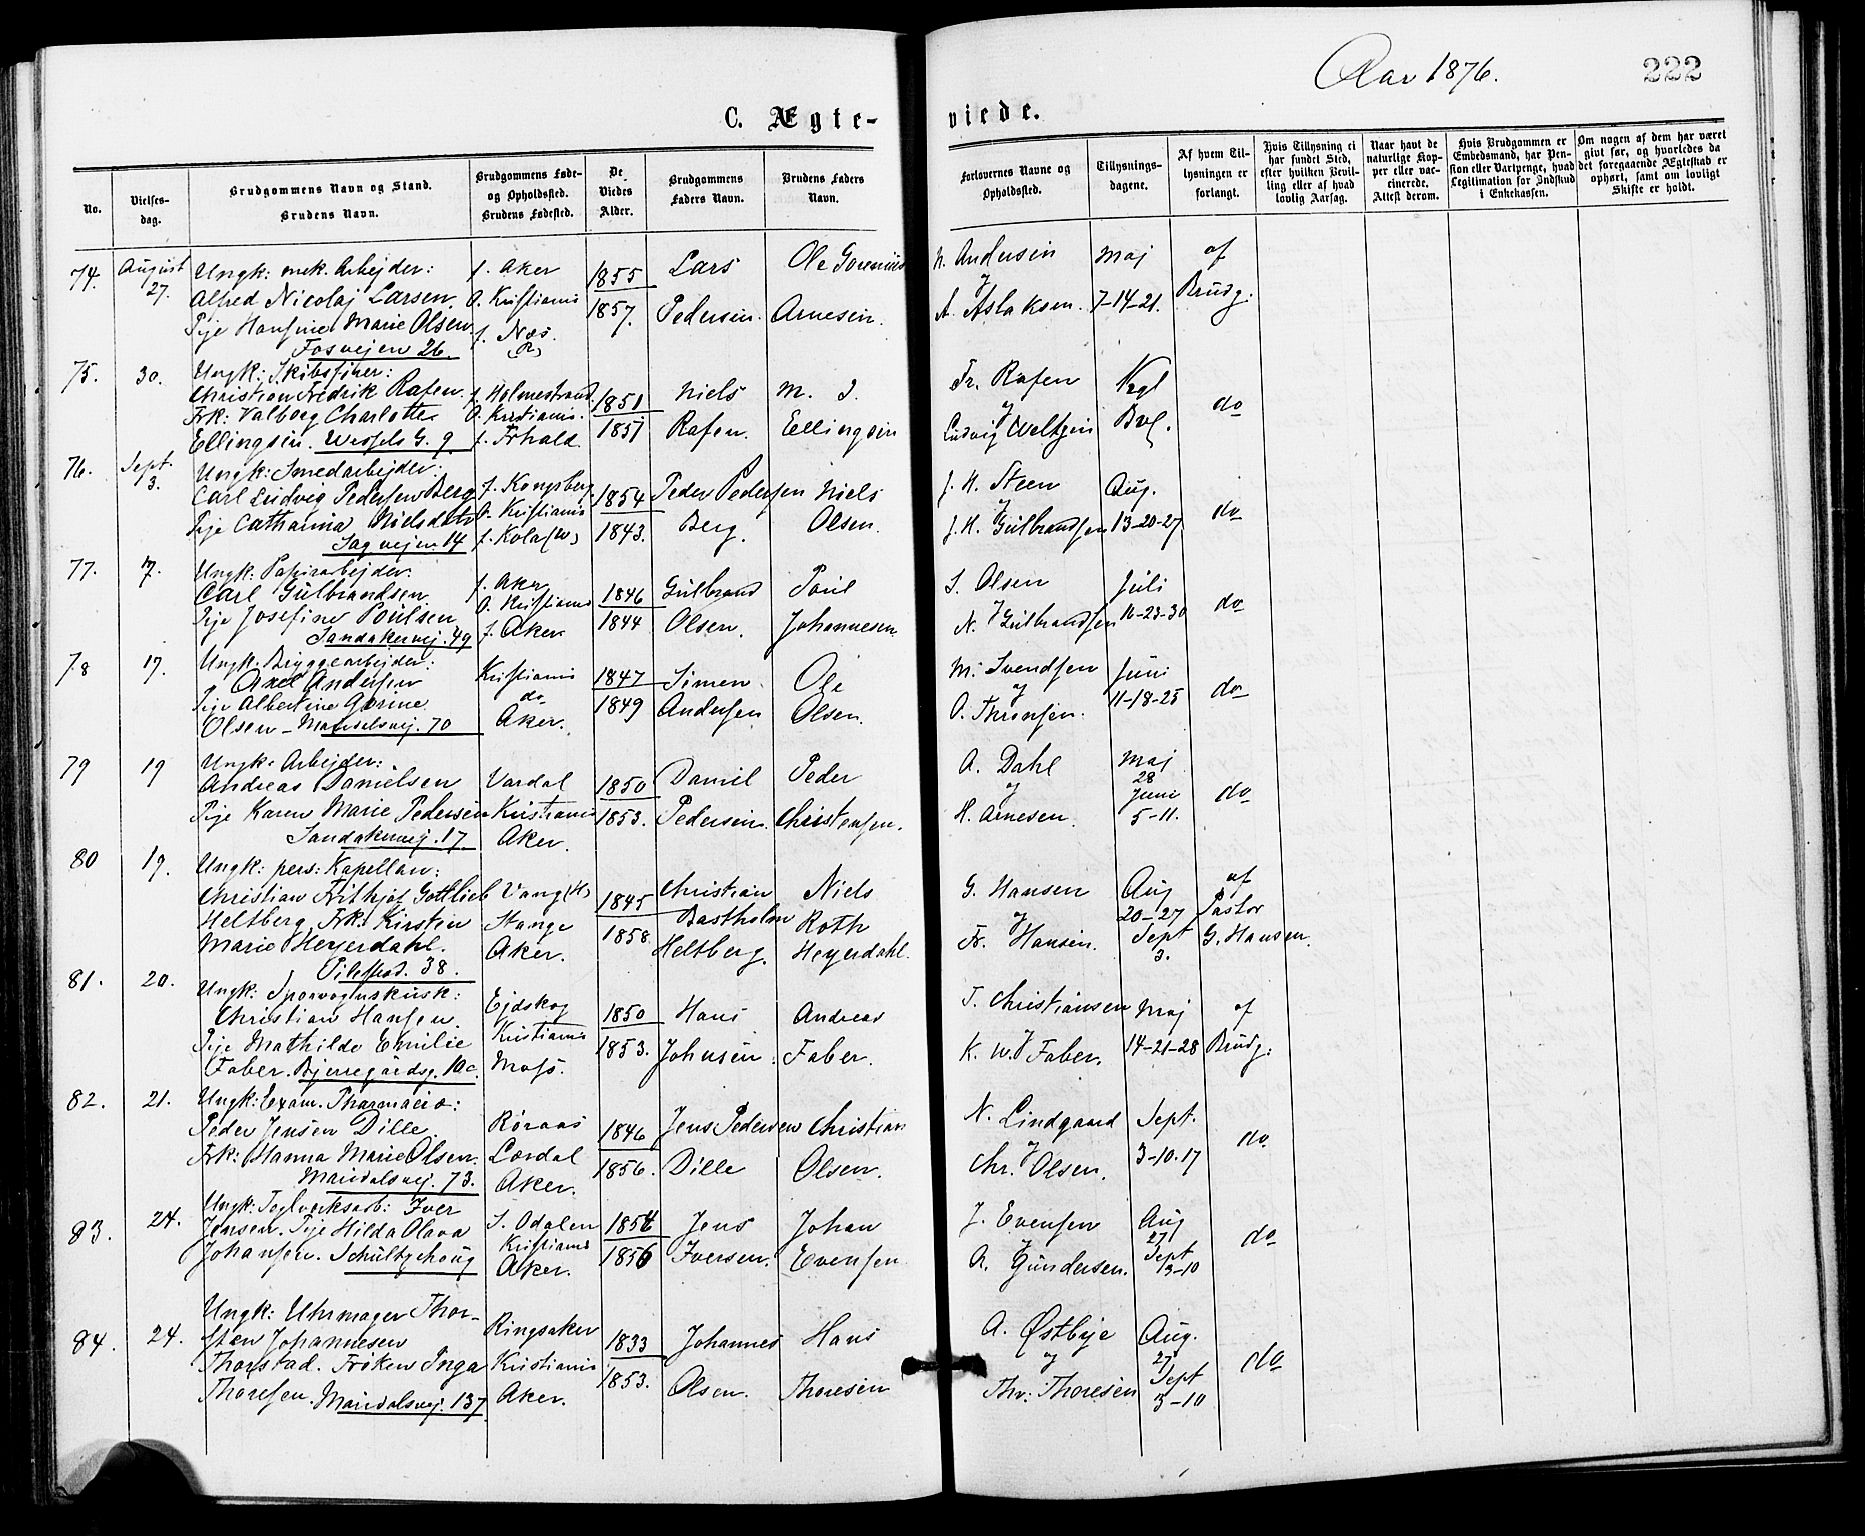 Aar 1876.
222
C. Ægte-
viede.
No.
Vielses-
dag.
Brudgommens Navn og Stand.
Brudens Navn.
Brudgommens Føde-
og Opholdssted.
Brudens Fødested.
De
Viedes
Alder.
Brudgommens
Faders Navn.
Brudens Faders
Navn.
Forlovernes Navne og
Opholdssted.
Tillysnings-
dagene.
Af hvem Til-
lysningen er
forlangt.
Hvis Tillysning ei
har fundet Sted,
efter hvilken Bevil-
ling eller af hvad
lovlig Aarsag.
Naar havt de
naturlige Kop-
per eller vac-
cinerede.
Attest derom.
Hvis Brudgommen er
Embedsmand, har Pen-
sion eller Vartpenge, hvad
Legitimation for Indskud
i Enkekassen.
Om nogen af dem har været
givt før, og hvorledes da
det foregaaende Ægteskab er
ophørt, samt om lovligt
Skifte er holdt.
74. August 27.
Ungk: mek. Arbejder:
Alfred Nicolaj Larsen.
Pige Hansine Marie Olsen
Fosvejen 26.
f. Aker
O. Kristiania
f. Næs.
(R)
1855
1857.
Lars
Pedersen.
Ole
Arnesen.
N. Andersen
og
A. Aslaksen.
Maj
7-14-21.
af
Brudg:
75. 30.
Ungk: Skibsfører:
Christian Fredrik Rafen.
Frk: Valborg Charlotte
Ellingsen. Wessels G. 9
f. Holmestrand
O. Kristiania.
f. Frhald.
1851
1851
Niels
Rafen.
M. J.
Ellingsen
Fr. Rafen
og
Ludvig
Kgl
Bvl.
do
76. Sept. 3.
Ungk: Smedarbejder:
Carl Ludvig Pedersen Berg
Pige Catharina Nielsdatr
Sagvejen 14
f. Kongsberg
O. Kristiania
1854
1843.
Peder Pedersen
Berg.
Niels
Olsen.
J. H. Steen
og
J. H. Gulbrandsen
Aug.
13-20-27
do
77. 17.
Ungk: Papirarbejder:
Carl Gulbrandsen
Pige Josefine Poulsen
Sandakervej. 49
f. Aker
O. Kristiania
f. Aker
1846
1844
Gulbrand
Olsen.
Poul
Johannesen
S. Olsen
og
N. Gulbrandsen
Juli
16-23-30
do
78 17.
Ungk. Bryggearbejder:
Axel Andersen
Pige Albertine Gorine
Olsen - Maridalsvej. 70
Kristiania
do
Aker.
1847
1849
Simen
Andersen
Ole
Olsen.
M. Svendsen
og
O. Thronsen.
Juni
11-18-25
do
79 19
Ungk: Arbejder:
Andreas Danielsen
Pige Karen Marie Pedersen
Sandakervej. 17.
Vardal
Kristiania
Aker.
1850
1853.
Daniel
Pedersen.
Peder
Christensen.
A. Dahl
og
H. Arnesen.
Maj
28
Juni
5-11.
do
80 19.
Ungk: pers: Kapellan:
Christian Frithjof Gottlieb
Heltberg. Frk: Kirstin
Marie Heyerdahl.
Pilestræd. 38.
Vang (H)
Stange
Aker.
1845
1858.
Christian
Bastholm
Heltberg.
Niels
Roth
Heyerdahl.
G. Hansen
og
Fr. Hansen.
Aug
20-27
Sept
3.
af
Pastor
G. Hansen.
81. 20.
Ungk: Sporvognskusk:
Christian Hansen.
Pige Mathilde Emilie
Faber. Bjerregårdsg. 10c.
Ejdskog
Kristiania
Moss.
1850
1853.
Hans
Johnsen.
Andreas
Faber.
T. Christiansen
og
K. W. Faber.
Maj
14-21-28
af
Brudg:
82. 21.
Ungk: Exam. Pharmacia:
Peder Jensen Dille.
Frk: Hanna Marie Olsen.
Maridalsvej. 73.
Røraas
Lærdal
Aker.
1846
1856.
Jens Pedersen
Dille
Christian
Olsen.
N. Lindgaard
og
Chr. Olsen.
Sept.
3-10.17
do
83. 24.
Ungk: Teglverksarb: Iver
Jensen. Pige Hilda Olava
Johansen. Schultzehaug
S. Odalen
Kristiania
Aker.
1854
1856
Jens
Iversen.
Johan
Evensen
J. Evensen
og
A. Gundersen.
Aug
27
Sept
3-10
do
84. 24.
Ungk: Uhrmager Thor-
sten Johannesen
Thorstad. Frøken Inga
Thoresen. Maridalsvej. 137
Ringsaker
Kristiania
Aker.
1833
1853.
Johannes
Olsen.
Hans
Thoresen
A. Østbye
og
Thv: Thoresen
Aug.
27
Sept
3-10
do